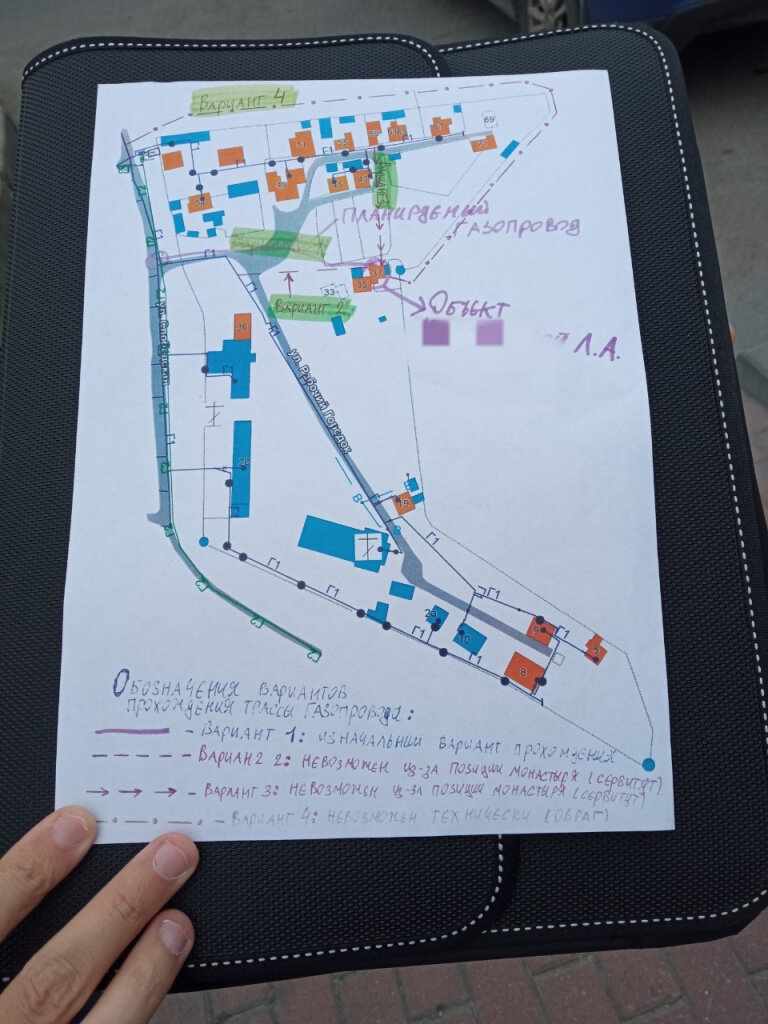 ВАРИАНТ 4
69
67
71
59
63
55
51
49
45
43
54
Г1
Г1
ПЛАНИРУЕМЫЙ
ГАЗОПРОВОД
Г1
37
35
33
ВАРИАНТ 2
ОБЪЕКТ
Л.А.
Г1
36
ул. Рабочий Городок
20
19
В
В
Г1
Г1
Г1
Г1
Г1
23
10
9
Г1
5
Г1
Г1
8
ОБОЗНАЧЕНИЯ ВАРИАНТОВ
ПРОХОЖДЕНИЯ ТРАССЫ ГАЗОПРОВОДА:
- ВАРИАНТ 1: ИЗНАЧАЛЬНЫЙ ВАРИАНТ ПРОХОЖДЕНИЯ
- ВАРИАНТ 2: НЕВОЗМОЖЕН ИЗ-ЗА ПОЗИЦИИ МОНАСТЫРЯ (СЕРВИТУТ)
- ВАРИАНТ 3: НЕВОЗМОЖЕН ИЗ-ЗА ПОЗИЦИИ МОНАСТЫРЯ (СЕРВИТУТ)
- ВАРИАНТ 4: НЕВОЗМОЖЕН ТЕХНИЧЕСКИ (ОВРАГ)